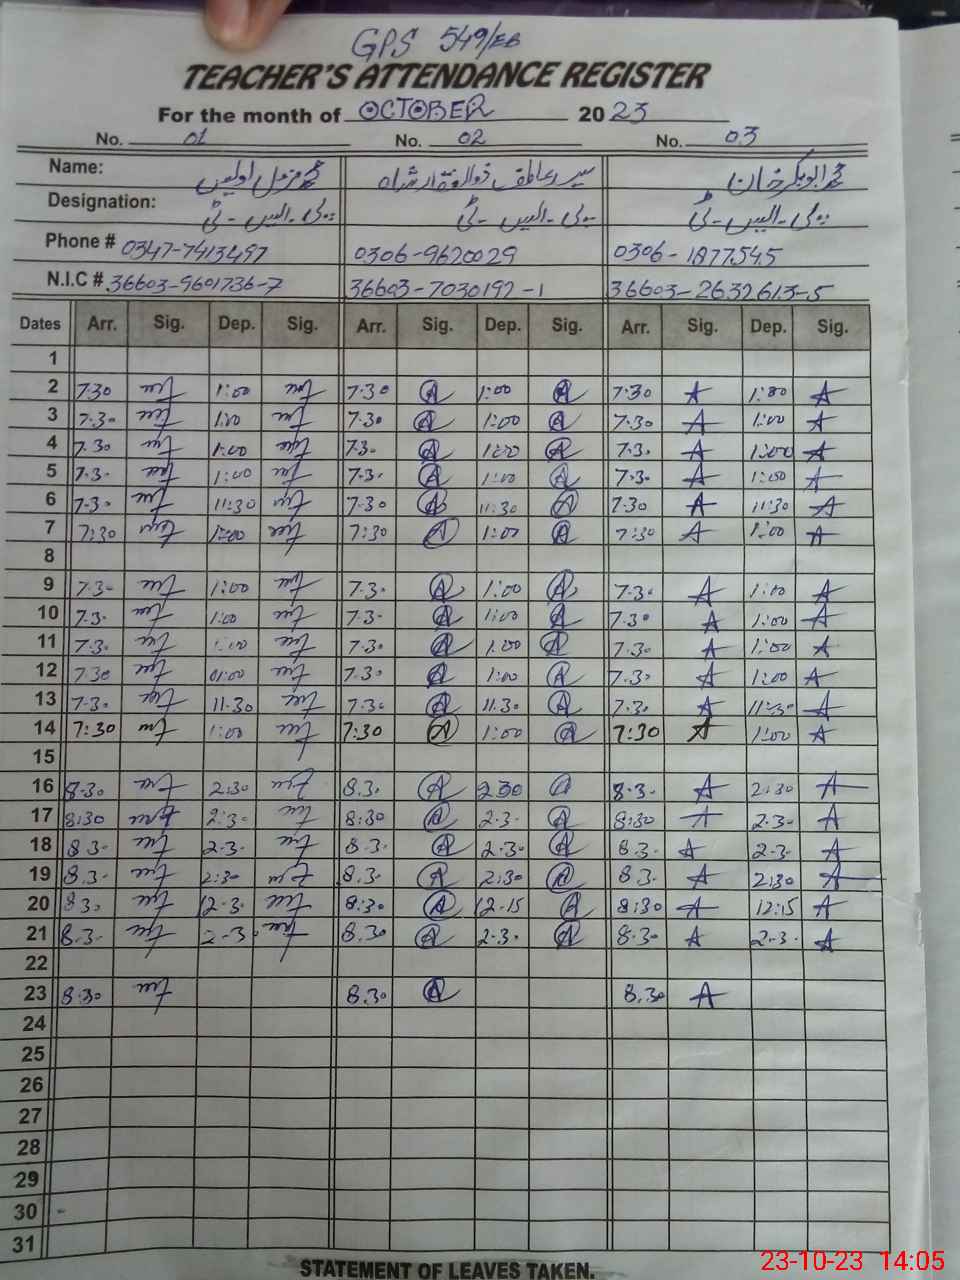 GPS 549/EB
TEACHER'S ATTENDANCE REGISTER
For the month of OCTOBER 2023
No. 01 No. 02 No. 03
Name: محمد مزمل اویس سید عاطف ذوالفقار شاہ محمد ابوبکر خان
Designation: پی-ایس-ٹی پی-ایس-ٹی پی-ایس-ٹی
Phone # 0347-7413497 0306-9620029 0306-1877545
N.I.C # 36603-9601736-7 36603-7030192-1 36603-2632613-5
Dates Arr. Sig. Dep. Sig. Arr. Sig. Dep. Sig. Arr. Sig. Dep. Sig.
1
2 7.30 1:00 7.30 A 1:00 A 7:30 A 1:00 A
3 7.30 1:00 7.30 A 1:00 A 7.30 A 1:00 A
4 7.30 1:00 7.30 A 1:00 A 7.30 A 1:00 A
5 7.30 1:00 7.30 A 1:00 A 7.30 A 1:00 A
6 7.30 11:30 7.30 A 11:30 A 7.30 A 11:30 A
7 7:30 1:00 7:30 A 1:00 A 7:30 A 1:00 A
8
9 7.30 1:00 7.30 A 1:00 A 7.30 A 1:00 A
10 7.30 1:00 7.30 A 1:00 A 7.30 A 1:00 A
11 7.30 1:00 7.30 A 1:00 A 7.30 A 1:00 A
12 7.30 01:00 7.30 A 1:00 A 7.30 A 1:00 A
13 7.30 11.30 7.30 A 11.30 A 7.30 A 11:30 A
14 7:30 1:00 7:30 A 1:00 A 7:30 A 1:00 A
15
16 8.30 2:30 8.30 A 2:30 A 8.30 A 2:30 A
17 8:30 2:30 8:30 A 2.30 A 8:30 A 2.30 A
18 8.30 2.30 8.30 A 2.30 A 8.30 A 2.30 A
19 8.30 2:30 8.30 A 2:30 A 8.30 A 2:30 A
20 8.30 12.30 8:30 A 12-15 A 8:30 A 12:15 A
21 8.30 2-30 8.30 A 2.30 A 8.30 A 2.30 A
22
23 8.30 8.30 A 8.30 A
24
25
26
27
28
29
30
31
STATEMENT OF LEAVES TAKEN.
23-10-23 14:05